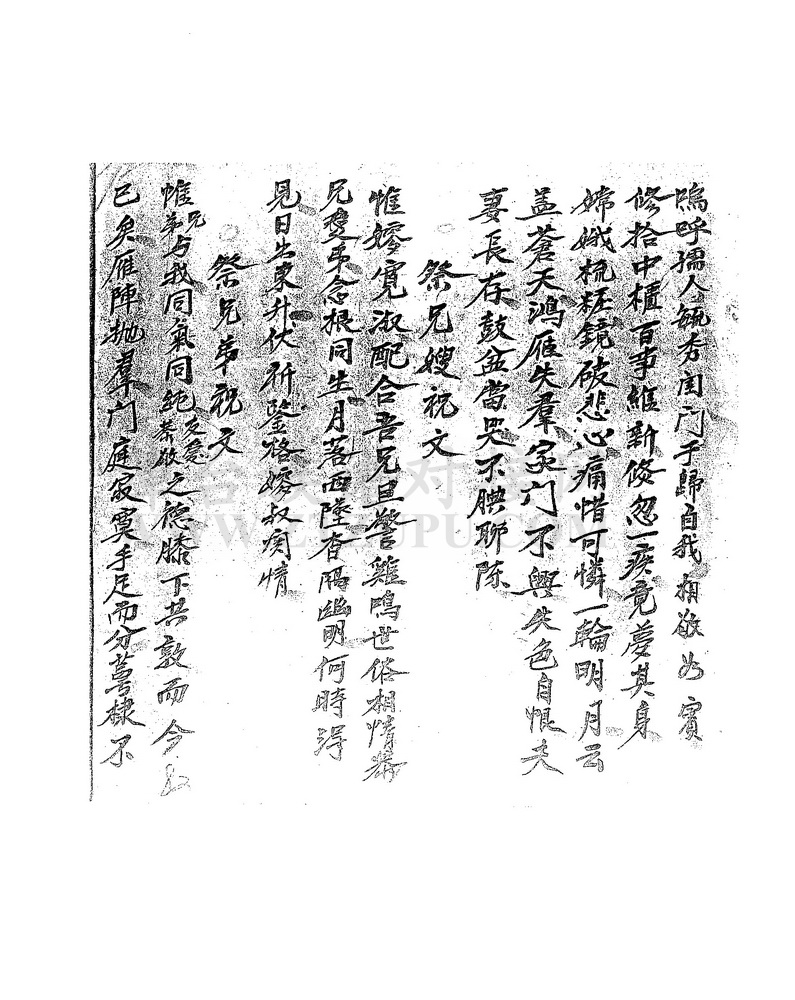 嗚呼孺人毓秀闺门于歸自我相敬如賓
修拾中櫃百事維新倐忽一疾竟夢其身
嫦娥梳粧鏡破悲心痛惜可憐一輪明月云
盖蒼天鴻雁失羣家门不興失色自恨夫
妻長存鼓盆當哭不腆聊陈
祭兄嫂祝文
惟嫂寬淑配合吾兄旦警雞鳴世俗相情恭
兄愛弟念根同生月落西墜杳隔幽明何時得
見日出東升伏祈鑒格嫂叔関情
祭兄弟祝文
惟兄弟与我同氣同純友爱恭敬之德膝下共敦而今
已矣雁陣抛羣门庭寂寞手足而分萼棣不